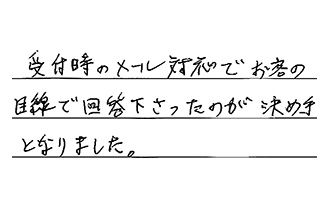 受付時のメール対応でお客の
目線で回答下さったのが決め手
となりました。